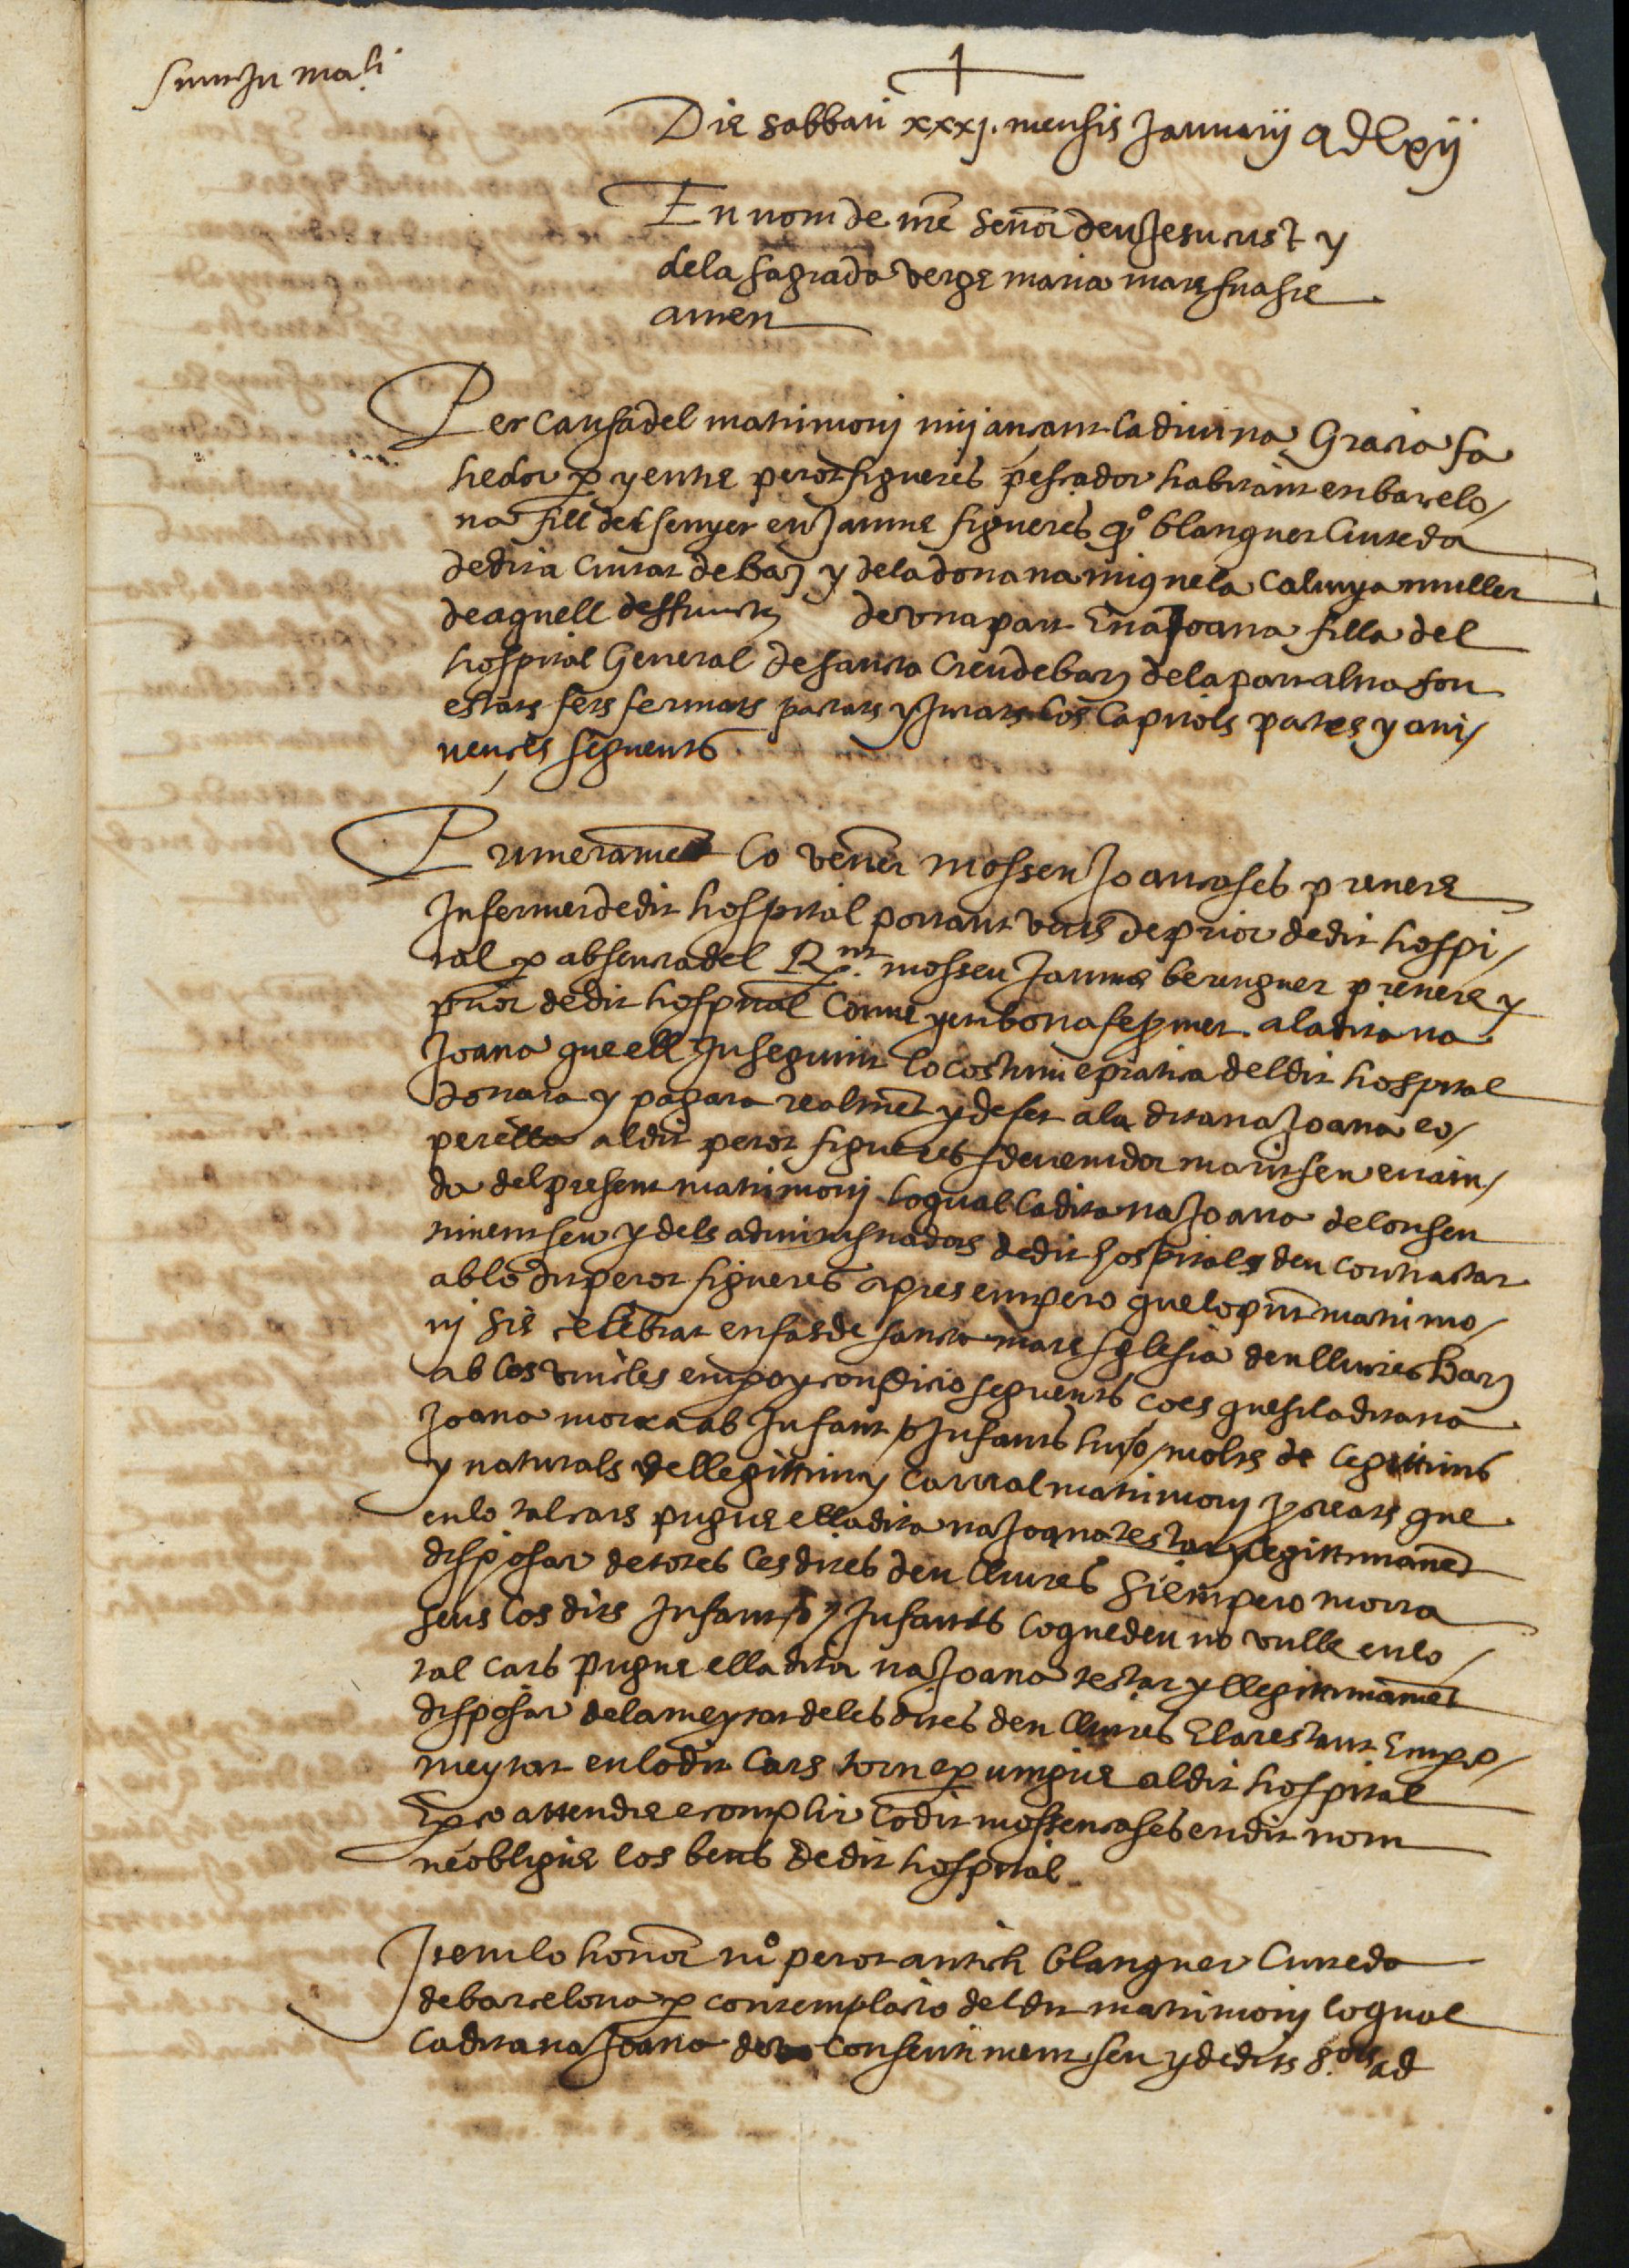 Die sabbati xxxj. mensis Januarij
En nom de nre senor deu Jesucrist y
dela sagrada verge maria mare sua sie
amen
Per causa del matrimonj mijansant la divina Gracia fa
hedor p y entre perot figueres pescador habitant en barcelo
na fill del senyer en Jaume figueres qº blanquer Ciuteda
dedita Ciutat de Bar y dela dona na miquela muller
de aquell deffuncts de una part E na Joana filla del
hospital General de sancta Creu de bar dela part altra son
estats fets fermats pactats y Jurats los Capitols pactes y avi
nences seguents
Primerament lo vener mossen Joan coses prevere
Infermer de dit hospital portant veus de prior de dit hospi
tal p absencia del Rnt mossen Jaume berenguer prevere y
prior de dit hospital Conve y en bona fe pmet a la dita na
Joana que ell Inseguint lo costum e pratica del dit hospital
donara y pagara realment y de fet ala dita na Joana eo
per ella al dit perot figueres sdevenidor marit seu en aiu
da del present matrimonj loqual la dita na Joana de consen
timent seu y dels administradors de dit hospital deu contractar
ab lo dit perot figueres apres empero que lo pnt matrimo
nj sie celebrat en fas de sancta mare Iglesia deu lliures Bar
ab los vincles empo y condicio seguents Coes que si la dita na
Joana morra ab Infant o Infants hu o molts de legittims
y naturals de llegittim y Carnal matrimonj pcreats que
en lo tal cars pugue ella dita na Joana testar y legittimament
disposar de totes les dites deu lliures Si empero morra
sens los dits Infant o Infants loque deu no vulle en lo
tal cars pugue ella dita na Joana testar y llegittimament
disposar dela meytat deles dites deu lliures E la restant Empo
meytat en lo dit Cars torn e pvingue al dit hospital
E p ço attendre e complir lo dit mossen coses en dit nom
ne obligue los bens de dit hospital
Item lo honor mº perot antich blanquer Ciuteda
de barcelona p contemplacio del dit matrimonj loqual
la dita na Joana de consentiment seu y de dits Sors ad